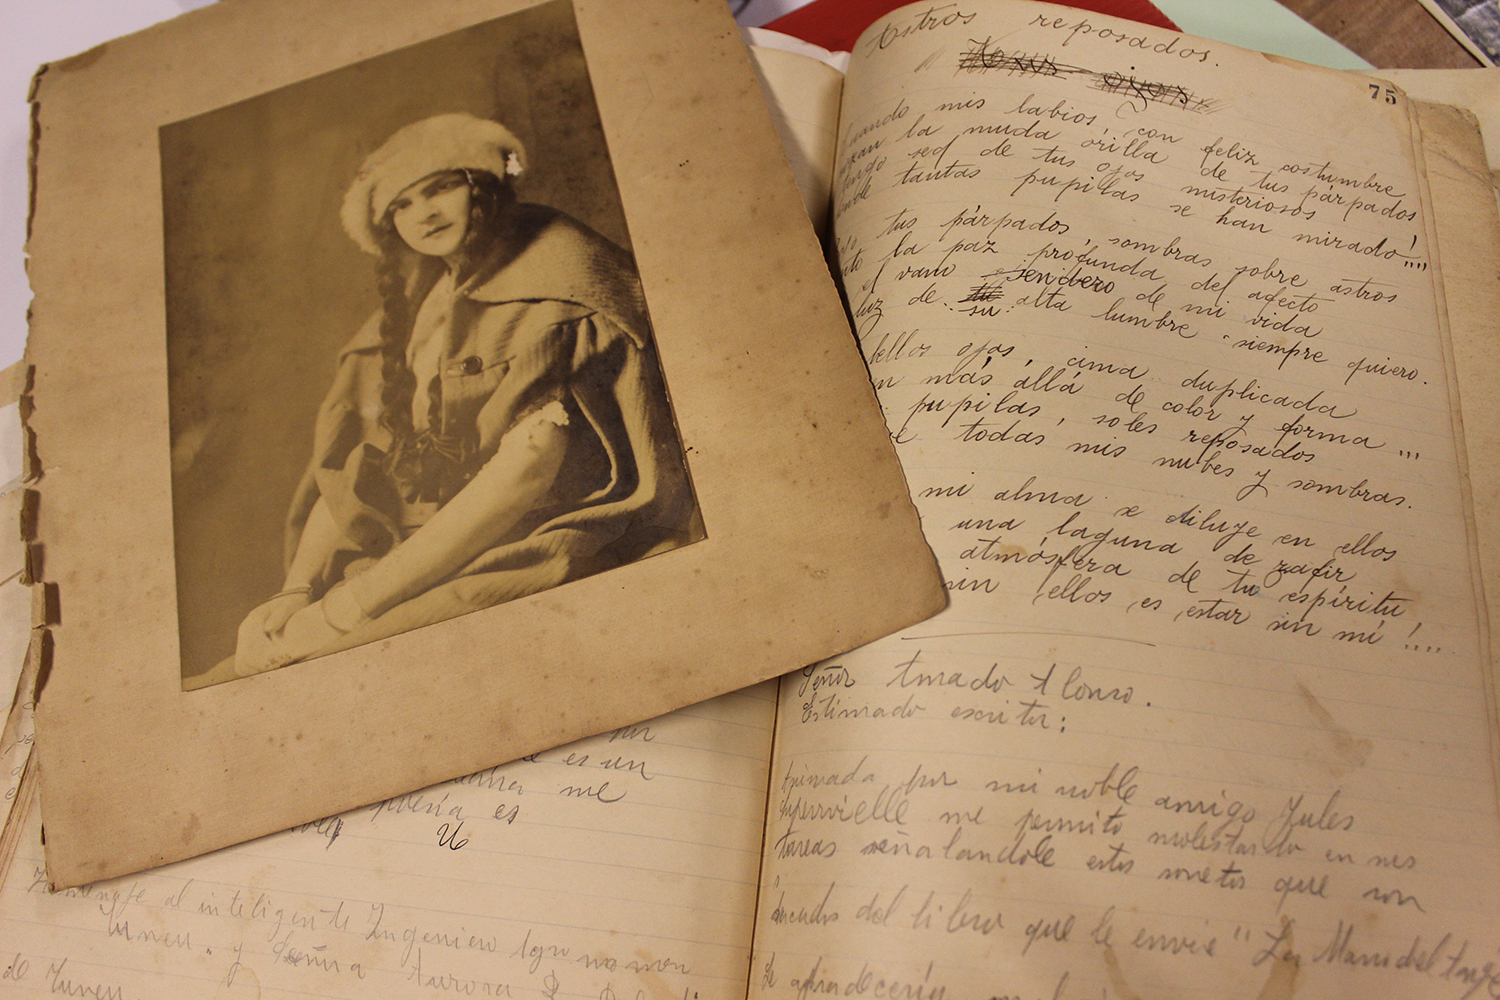 Astros reposados.
75
mis labios, con feliz costumbre
la muda orilla de tus párpados
sed de tus ojos misteriosos
tantas pupilas se han mirado!....
tus párpados, sombras sobre astros
la paz profunda del afecto
el vano sendero de mi vida
luz de su alta lumbre siempre quiero.
bellos ojos, cima duplicada
más állá de color y forma ...
pupilas, soles reposados
todas mis nubes y sombras.
mi alma se diluye en ellos
una laguna de zafir,
atmósfera de tu espíritu,
sin ellos es estar sin mí!....
Señor Amado Alonso.
Estimado escritor:
Animada por mi noble amigo Jules
Supervielle me permito molestarlo en sus
tareas señalandole estos sonetos que son
del libro que le envié "La Mano del
Le agradecería
es un
me
poesía es
Homenaje al inteligente Ingeniero Agronomo
y Señora Aurora
de